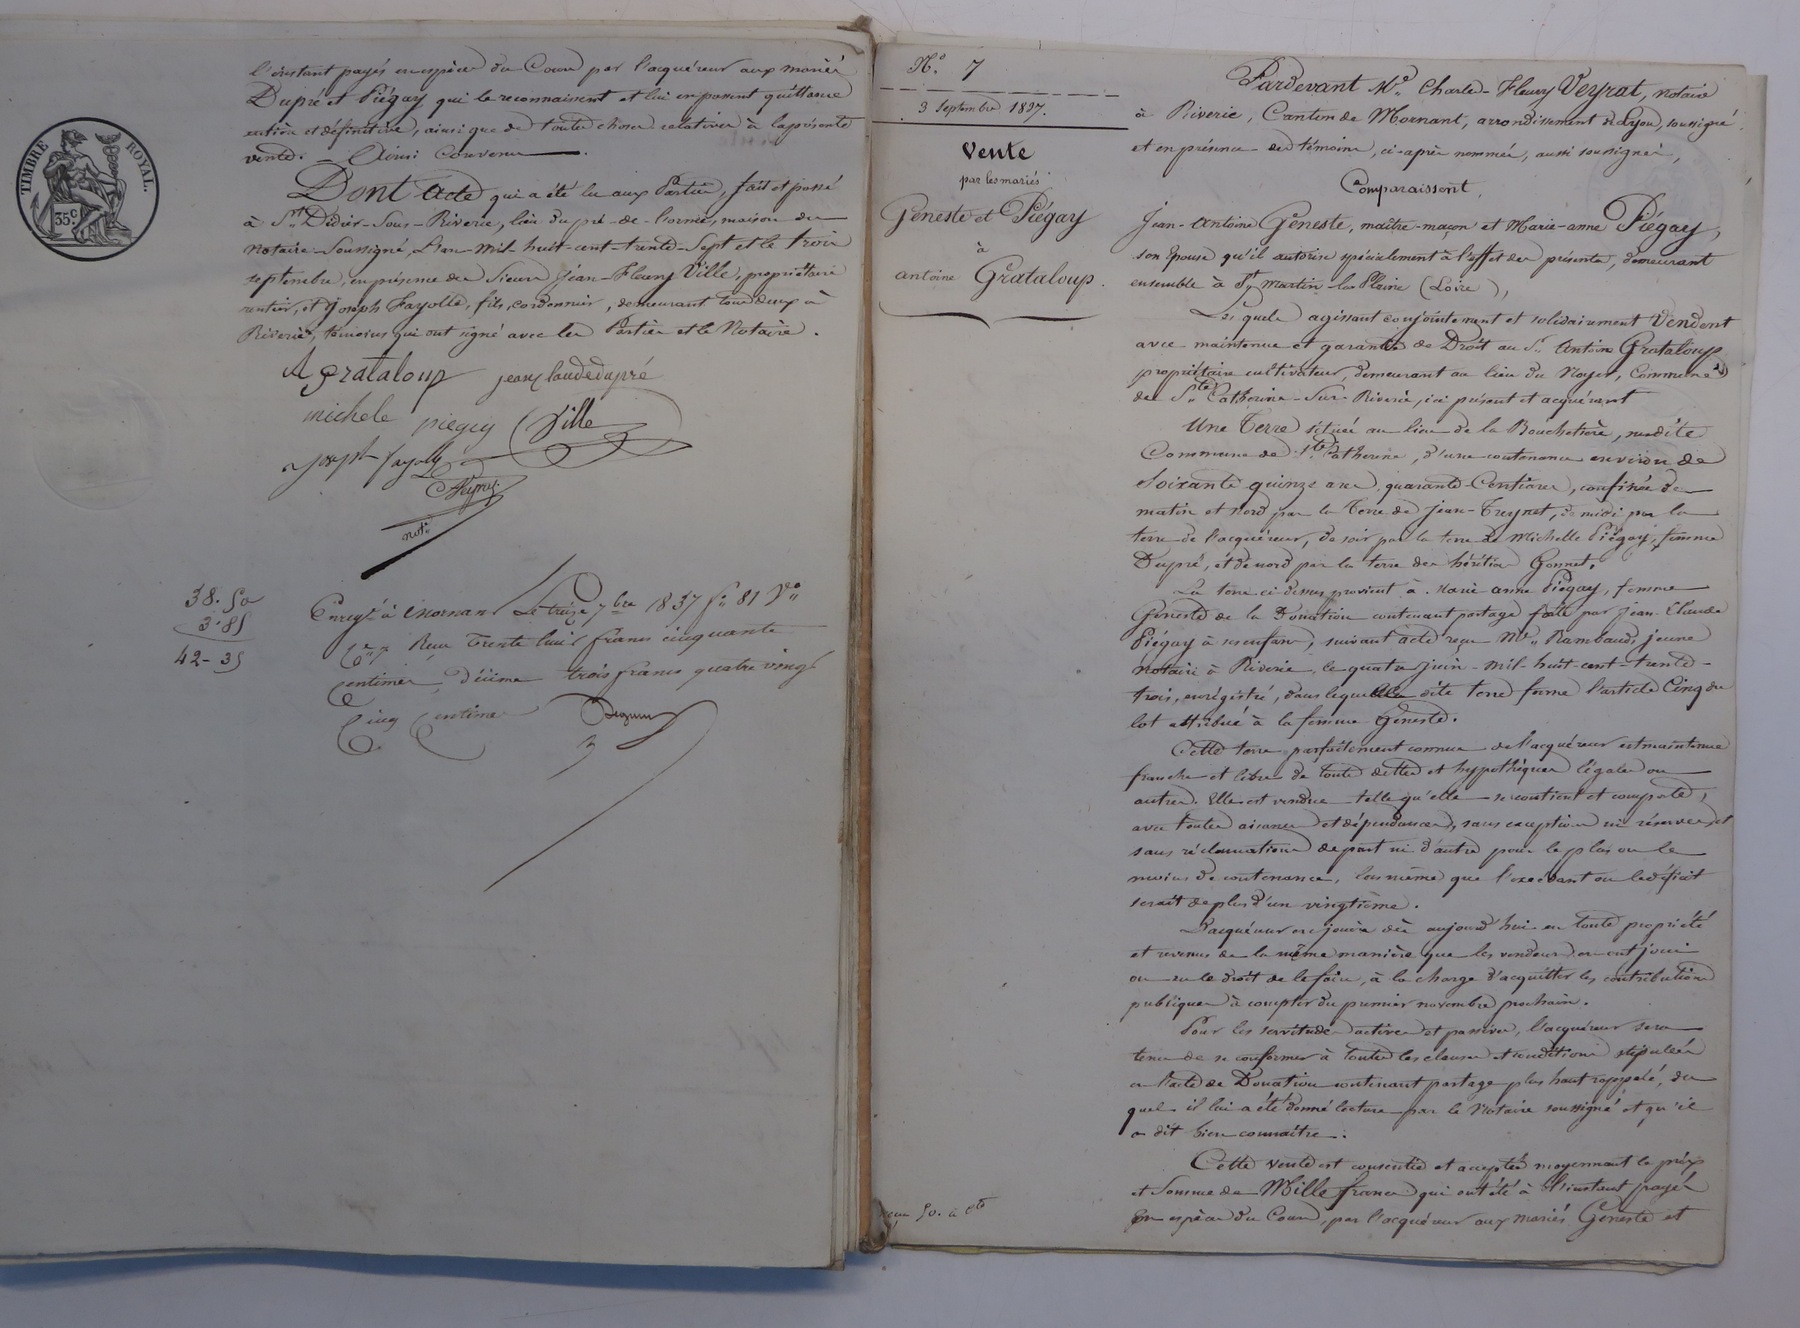 l'instant payés en espèces du Cours par l'acquéreur aux mariés
Dupré et Piégay qui le reconnaissent et lui en passent quittance
entière et définitive, ainsi que de toutes choses relatives à la présente
vente. Ainsi Convenu
Dont Acte qui a été lu aux Parties, fait et passé
à St. Didier-Sous-Riverie, lieu du pré-de-l'orme, maison du
Notaire Soussigné, L'an-mil-huit-cent-trente-Sept et le trois
septembre, en présence des Sieurs Jean-Fleury Ville, propriétaire
rentier, et Joseph Fayolle, fils, cordonnier, demeurant tous deux à
Riverie, témoins qui ont signé avec les Parties et le Notaire.
TIMBRE ROYAL.
35c
A grataloup jean claude dupré
michele piegey Ville
joseph fayolle
CVeyrat
not.
38.50
3.85
42-35
Enregé à Mornant Le treize 7bre 1837 fo 81 Vo
Reçu Trente huit francs cinquante
Centimes, Décime trois francs quatre vingt
Cinq Centimes
No. 7
3 Septembre 1837.
Vente
par les mariés
Geneste et Piégay
à
antoine Grataloup.
reçu 50. à cte
Pardevant Me. Charles-Fleury Veyrat, notaire
à Riverie, Canton de Mornant, arrondissement de Lyon, soussigné
et en présence des témoins, ci-après nommés, aussi soussignés,
Comparaissent,
Jean-Antoine Geneste, maître-maçon et Marie-anne Piégay,
son Epouse qu'il autorise spécialement à l'effet des présentes, demeurant
ensemble à St. Martin-la-Plaine (Loire),
Lesquels agissant conjointement et solidairement Vendent
avec maintenue et garantie de Droit au Sr. Antoine Grataloup
propriétaire cultivateur, demeurant au lieu du Noyer, Commune
de Ste. Catherine-Sur-Riverie, ici présent et acquérant
Une Terre située au lieu de la Bouchetière, susdite
Commune de Ste. Catherine, d'une contenance environ de
Soixante quinze ares quarante-Centiares, confinée de
matin et Nord par la Terre de Jean-Treynet, de midi par la
terre de l'acquéreur, de soir par la terre de Michelle Piégay, femme
Dupré, et de nord par la terre des héritiers Gonnet.
La terre ci-dessus provient à Marie anne Piégay, femme
Geneste de la Donation contenant partage faite par Jean-Claude
Piégay à ses enfans, suivant acte reçu Me. Rambaud, jeune
notaire à Riverie, le quatre juin-mil-huit-cent-trente-
trois, enrégistré, dans lequel la dite terre forme l'article Cinq du
lot attribué à la femme Geneste.
Cette terre parfaitement connue de l'acquéreur est maintenue
franche et libre de toutes dettes et hypothèques légales ou
autres. Elle est vendue telle qu'elle se contient et comporte,
avec toutes aisances et dépendances, sans exception ni réserve, et
sans réclamation de part ni d'autre pour le plus ou le
moins de contenance, lors même que l'excédant ou le déficit
serait de plus d'un vingtième.
L'acquéreur en jouira dès aujourd'hui en toute propriété
et revenus de la même manière que les vendeurs en ont joui
ou eu le droit de le faire, à la charge d'acquitter les contributions
publiques à compter du premier novembre prochain.
Pour les servitudes actives et passives, l'acquéreur sera
tenu de se conformer à toutes les clauses et conditions stipulées
en l'acte de Donation contenant partage plus haut rappelé, du
quel il lui a été donné lecture par le Notaire soussigné et qu'il
a dit bien connaître.
Cette vente est consentie et acceptée moyennant le prix
et Somme de Mille francs qui ont été à l'instant payés
En espèces du Cours, par l'acquéreur aux mariés Geneste et